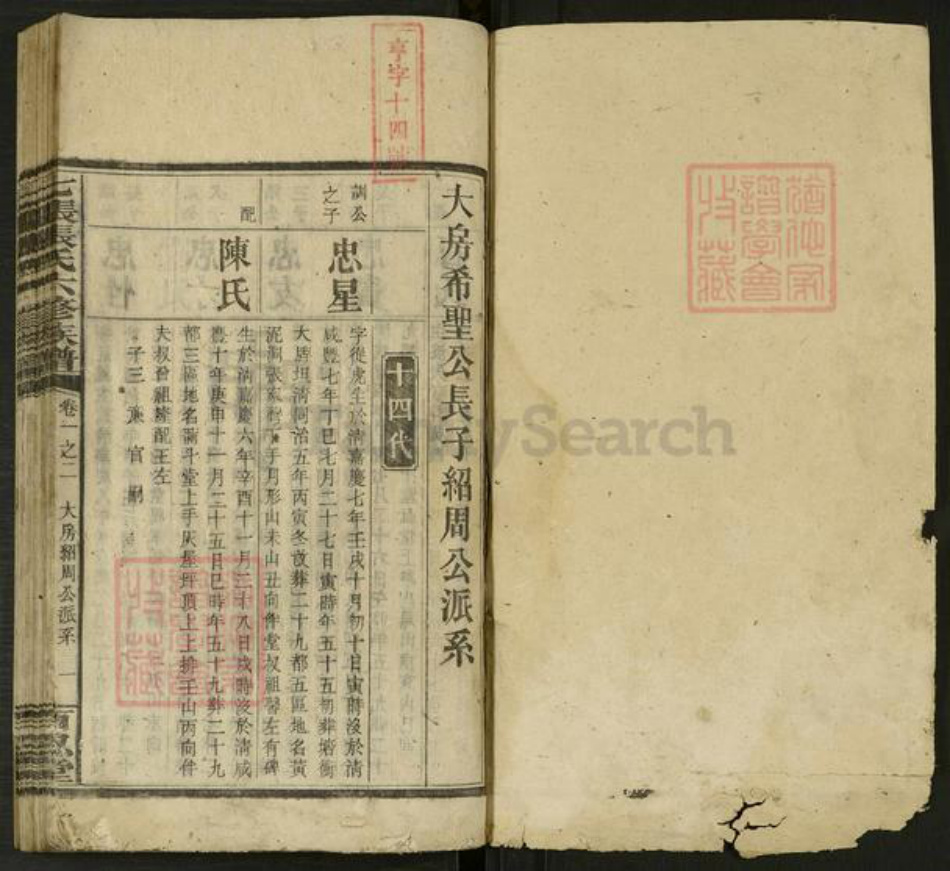 亨字十四號
大房希聖公長子紹周公派系
十四代
訓公
之子
忠星
字從虎生於清嘉慶七年壬戌十月初十日寅時沒於清
咸豐七年丁巳七月二十七日寅時年五十五初葬
大塘坦清同治五年丙寅冬改葬二十九都五區地名黃
形山未山丑向伴堂叔祖醫左有碑
配
陳氏
生於清嘉慶六年辛酉十一月二十八日戌時沒於清咸
豐十年庚申十一月二十五日巳時年五十九葬二十九
都三區地名 斗堂上手灰屋坪頂上上排壬山丙向伴
夫叔曾祖 配王左
子三 官
張氏六修族譜
卷一之二
大房紹周公派系
一
譜學會
收藏